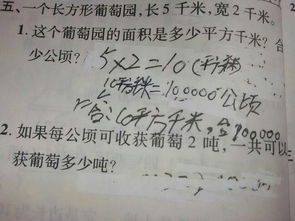 五、一个长方形葡萄园,长5千米,宽2千米。
1.这个葡萄园的面积是多少平方千米?合
少公顷?
5×2=10(平方千米)
10平方千米=100000公顷
答:10平方千米,合100000
2.如果每公顷可收获葡萄2吨,一共可以
获葡萄多少吨?